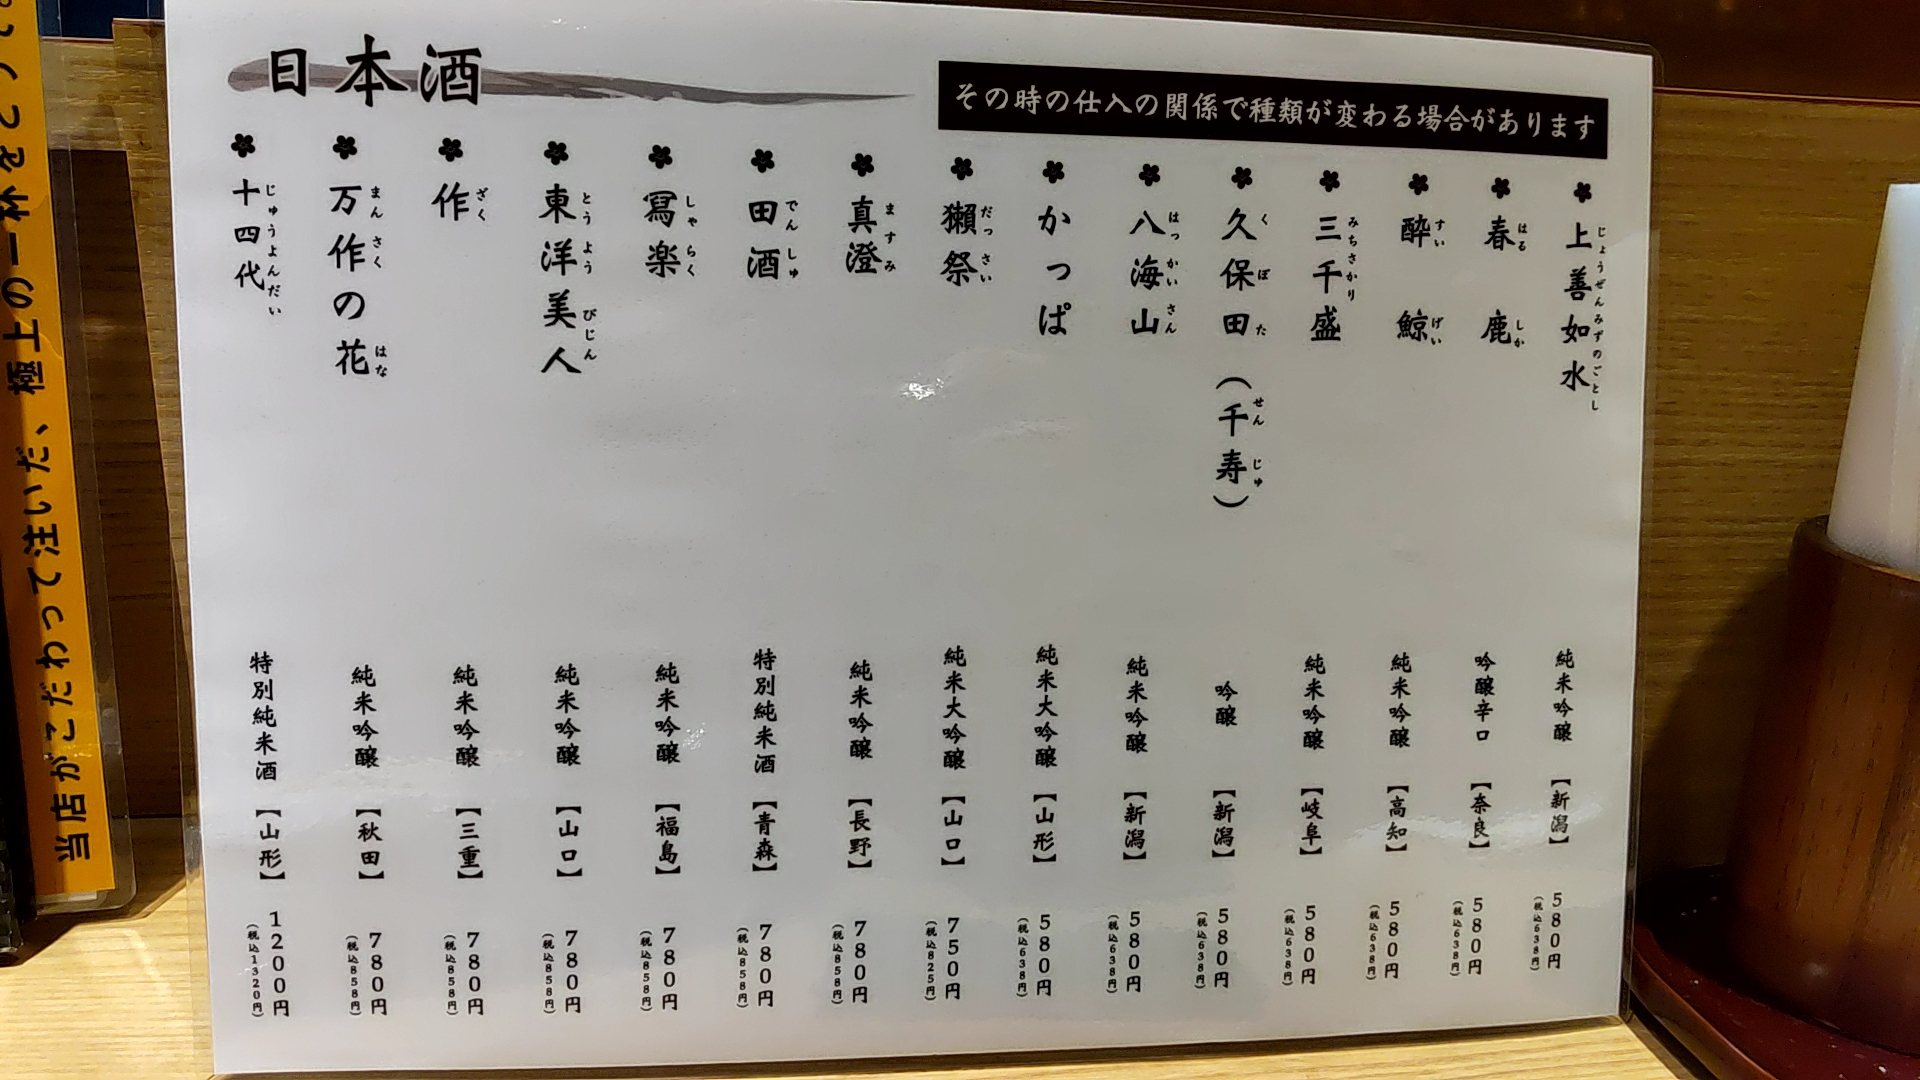 日本酒
その時の仕入の関係で種類が変わる場合があります
上善如水 じょうぜんみずのごとし 純米吟醸 【新潟】 580円 (税込638円)
春鹿 はるしか 吟醸辛口 【奈良】 580円 (税込638円)
酔鯨 すいげい 純米吟醸 【高知】 580円 (税込638円)
三千盛 みちさかり 純米吟醸 【岐阜】 580円 (税込638円)
久保田(千寿) くぼた せんじゅ 吟醸 【新潟】 580円 (税込638円)
八海山 はっかいさん 純米吟醸 【新潟】 580円 (税込638円)
かっぱ 純米大吟醸 【山形】 580円 (税込638円)
獺祭 だっさい 純米大吟醸 【山口】 750円 (税込825円)
真澄 ますみ 純米吟醸 【長野】 780円 (税込858円)
田酒 でんしゅ 特別純米酒 【青森】 780円 (税込858円)
冩楽 しゃらく 純米吟醸 【福島】 780円 (税込858円)
東洋美人 とうようびじん 純米吟醸 【山口】 780円 (税込858円)
作 ざく 純米吟醸 【三重】 780円 (税込858円)
万作の花 まんさく はな 純米吟醸 【秋田】 780円 (税込858円)
十四代 じゅうよんだい 特別純米酒 【山形】 1200円 (税込1320円)
当店がこだわって注いだ、極上の一杯を